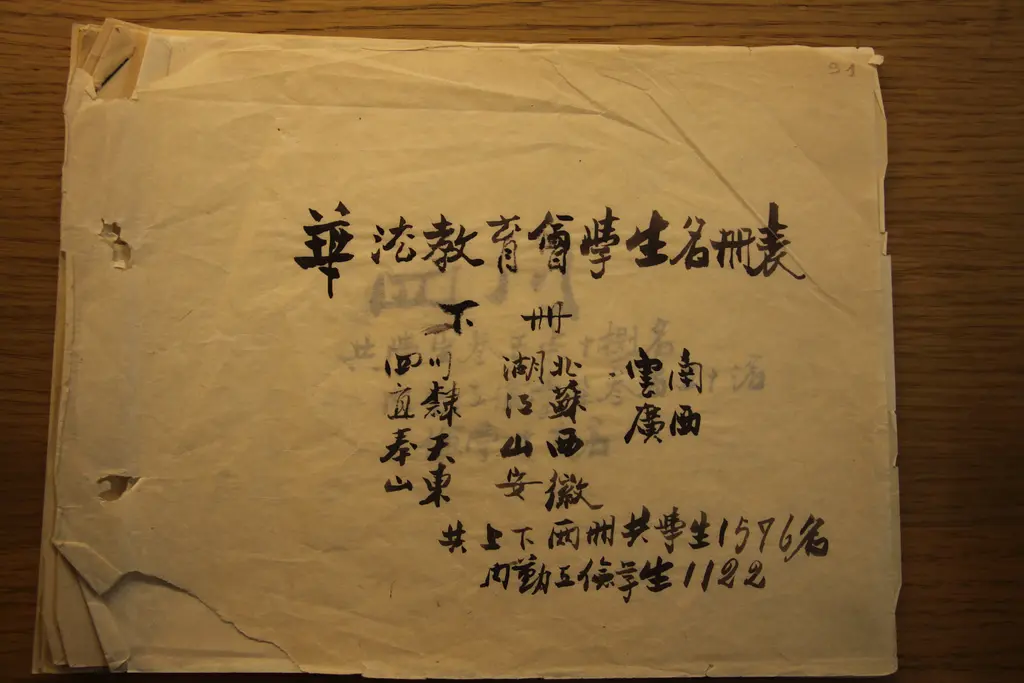 31
華法教育會學生名冊表
下冊
四川 湖北 雲南
直隸 江蘇 廣西
奉天 山西
山東 安徽
共上下兩冊共學生1576名
內勤工儉学生1122